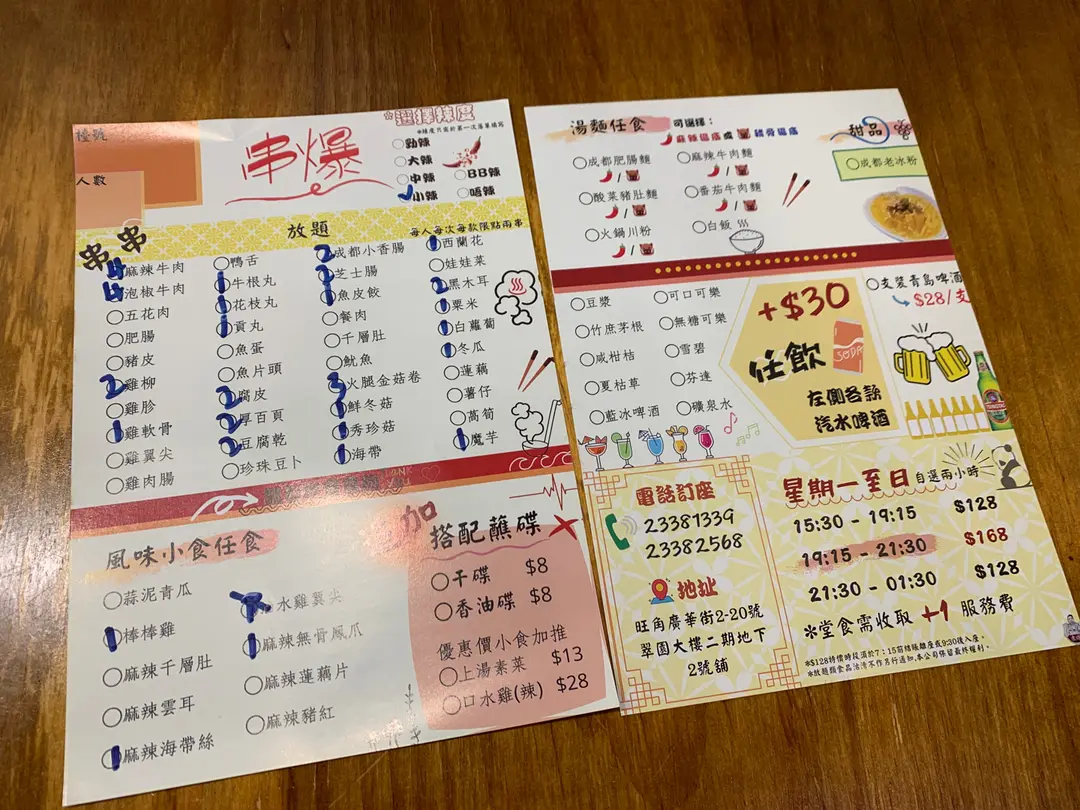 檯號
人數
串爆
選擇辣度
*辣度只需於第一次落單填寫
勁辣
大辣
中辣
小辣
BB辣
唔辣
串串
放題
每人每次每款限點兩串
4麻辣牛肉
4泡椒牛肉
五花肉
肥腸
豬皮
2雞柳
雞胗
1雞軟骨
雞翼尖
雞肉腸
鴨舌
1牛根丸
1花枝丸
1貢丸
魚蛋
魚片頭
2腐皮
2厚百頁
2豆腐乾
珍珠豆卜
2成都小香腸
2芝士腸
1魚皮餃
餐肉
千層肚
魷魚
3火腿金菇卷
1鮮冬菇
1秀珍菇
1海帶
1西蘭花
娃娃菜
2黑木耳
1粟米
1白蘿蔔
1冬瓜
蓮藕
薯仔
萵筍
1魔芋
風味小食任食
蒜泥青瓜
1棒棒雞
麻辣千層肚
麻辣雲耳
1麻辣海帶絲
水雞翼尖
1麻辣無骨鳳爪
麻辣蓮藕片
麻辣豬紅
加
搭配蘸碟
干碟 $8
香油碟 $8
優惠價小食加推
上湯素菜 $13
口水雞(辣) $28
湯麵任食
可選擇:
麻辣湯底或豬骨湯底
成都肥腸麵
/
酸菜豬肚麵
/
火鍋川粉
/
麻辣牛肉麵
/
番茄牛肉麵
/
白飯
甜品
成都老冰粉
豆漿
竹庶茅根
咸柑桔
夏枯草
藍冰啤酒
可口可樂
無糖可樂
雪碧
芬達
礦泉水
+$30
任飲
SODA
左側各款
汽水啤酒
支裝青島啤酒
$28/支
電話訂座
23381339
23382568
地址
旺角廣華街2-20號
翠園大樓二期地下
2號舖
星期一至日 自選兩小時
15:30 - 19:15 $128
19:15 - 21:30 $168
21:30 - 01:30 $128
*堂食需收取 +1 服務費
*$128特價時段須於7:15前結賬離座或9:30後入座。
*放題類食品沽清不作另行通知,本公司保留最終權利。